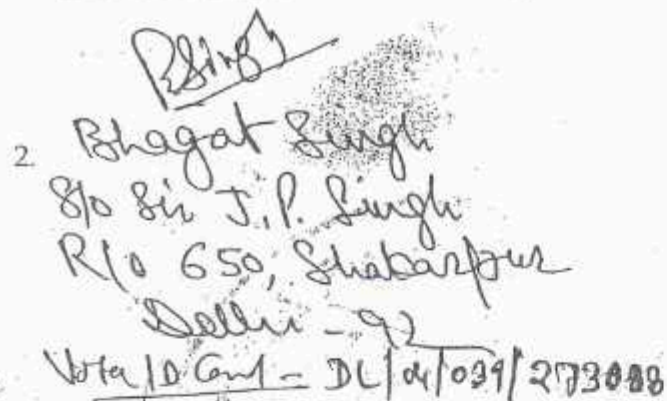 BSingh
2 Bhagat Singh
S/o Sh. J.P. Singh
R/o 650, Shakarpur
Delhi - 92
Voter ID Card - DL/04/039/273